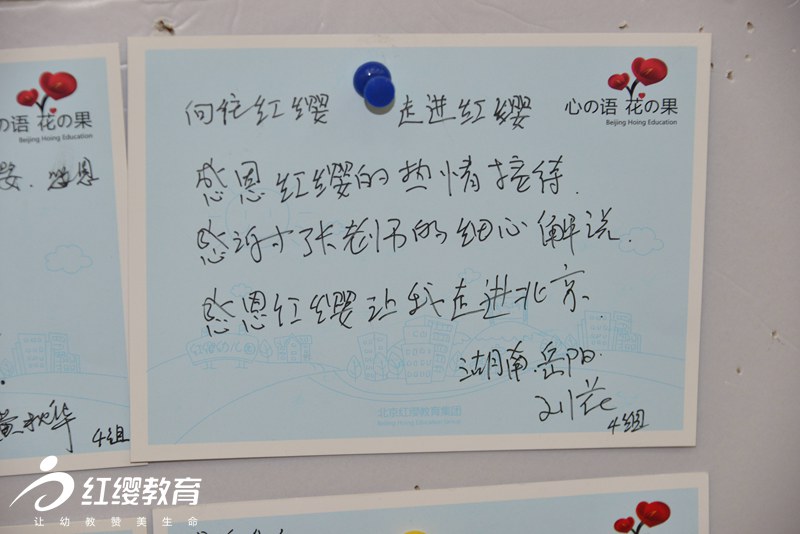 向往红缨 走进红缨
心の语 花の果
Beijing Hoing Education
感恩红缨的热情接待.
感谢张老师的细心解说.
感恩红缨让我走进北京.
湖南.岳阳.
刘花
4组
北京红缨教育集团
Beijing Hoing Education Group
の语 花の果
Beijing Hoing Education
感恩
黄秋华
4组
红缨教育
让幼教赞美生命